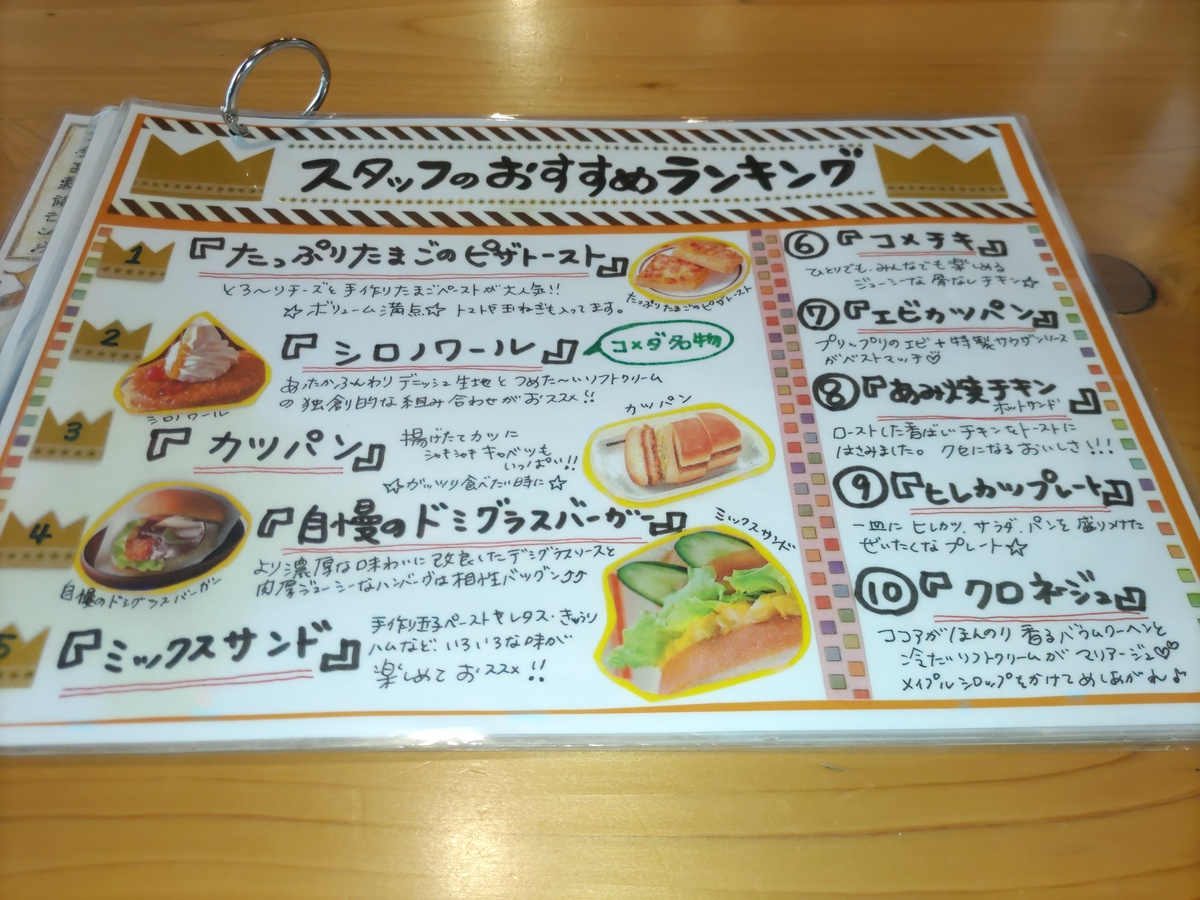 スタッフのおすすめランキング
1
『たっぷりたまごのピザトースト』
とろ〜りチーズと手作りたまごペーストが大人気!!
☆ボリューム満点☆ トマトや玉ねぎも入ってます。
たっぷりたまごのピザトースト
2
『シロノワール』
コメダ名物
あったかふんわりデニッシュ生地とつめた〜いソフトクリーム
の独創的な組み合わせがおススメ!!
シロノワール
3
『カツパン』
揚げたてカツに
シャキシャキキャベツも
いっぱい!!
☆ガッツリ食べたい時に☆
カツパン
4
『自慢のドミグラスバーガー』
より濃厚な味わいに改良したデミグラスソースと
肉厚ジューシーなハンバーグは相性バツグン♪♪
自慢のドミグラスバーガー
5
『ミックスサンド』
手作り玉子ペーストやレタス・きゅうり
ハムなど、いろいろな味が
楽しめておススメ!!
ミックスサンド
⑥『コメチキ』
ひとりでも、みんなでも楽しめる
ジューシーな骨なしチキン☆
⑦『エビカツパン』
プリップリのエビ+特製サウザンソース
がベストマッチ♡
⑧『あみ焼チキン
ホットサンド』
ローストした香ばしいチキンをトーストに
はさみました。クセになるおいしさ!!!
⑨『ヒレカツプレート』
一皿にヒレカツ、サラダ、パンを盛り付けた
ぜいたくなプレート☆
⑩『クロネージュ』
ココアがほんのり香るバウムクーヘンと
冷たいソフトクリームがマリアージュ♡♡
メイプルシロップをかけてめしあがれ♪